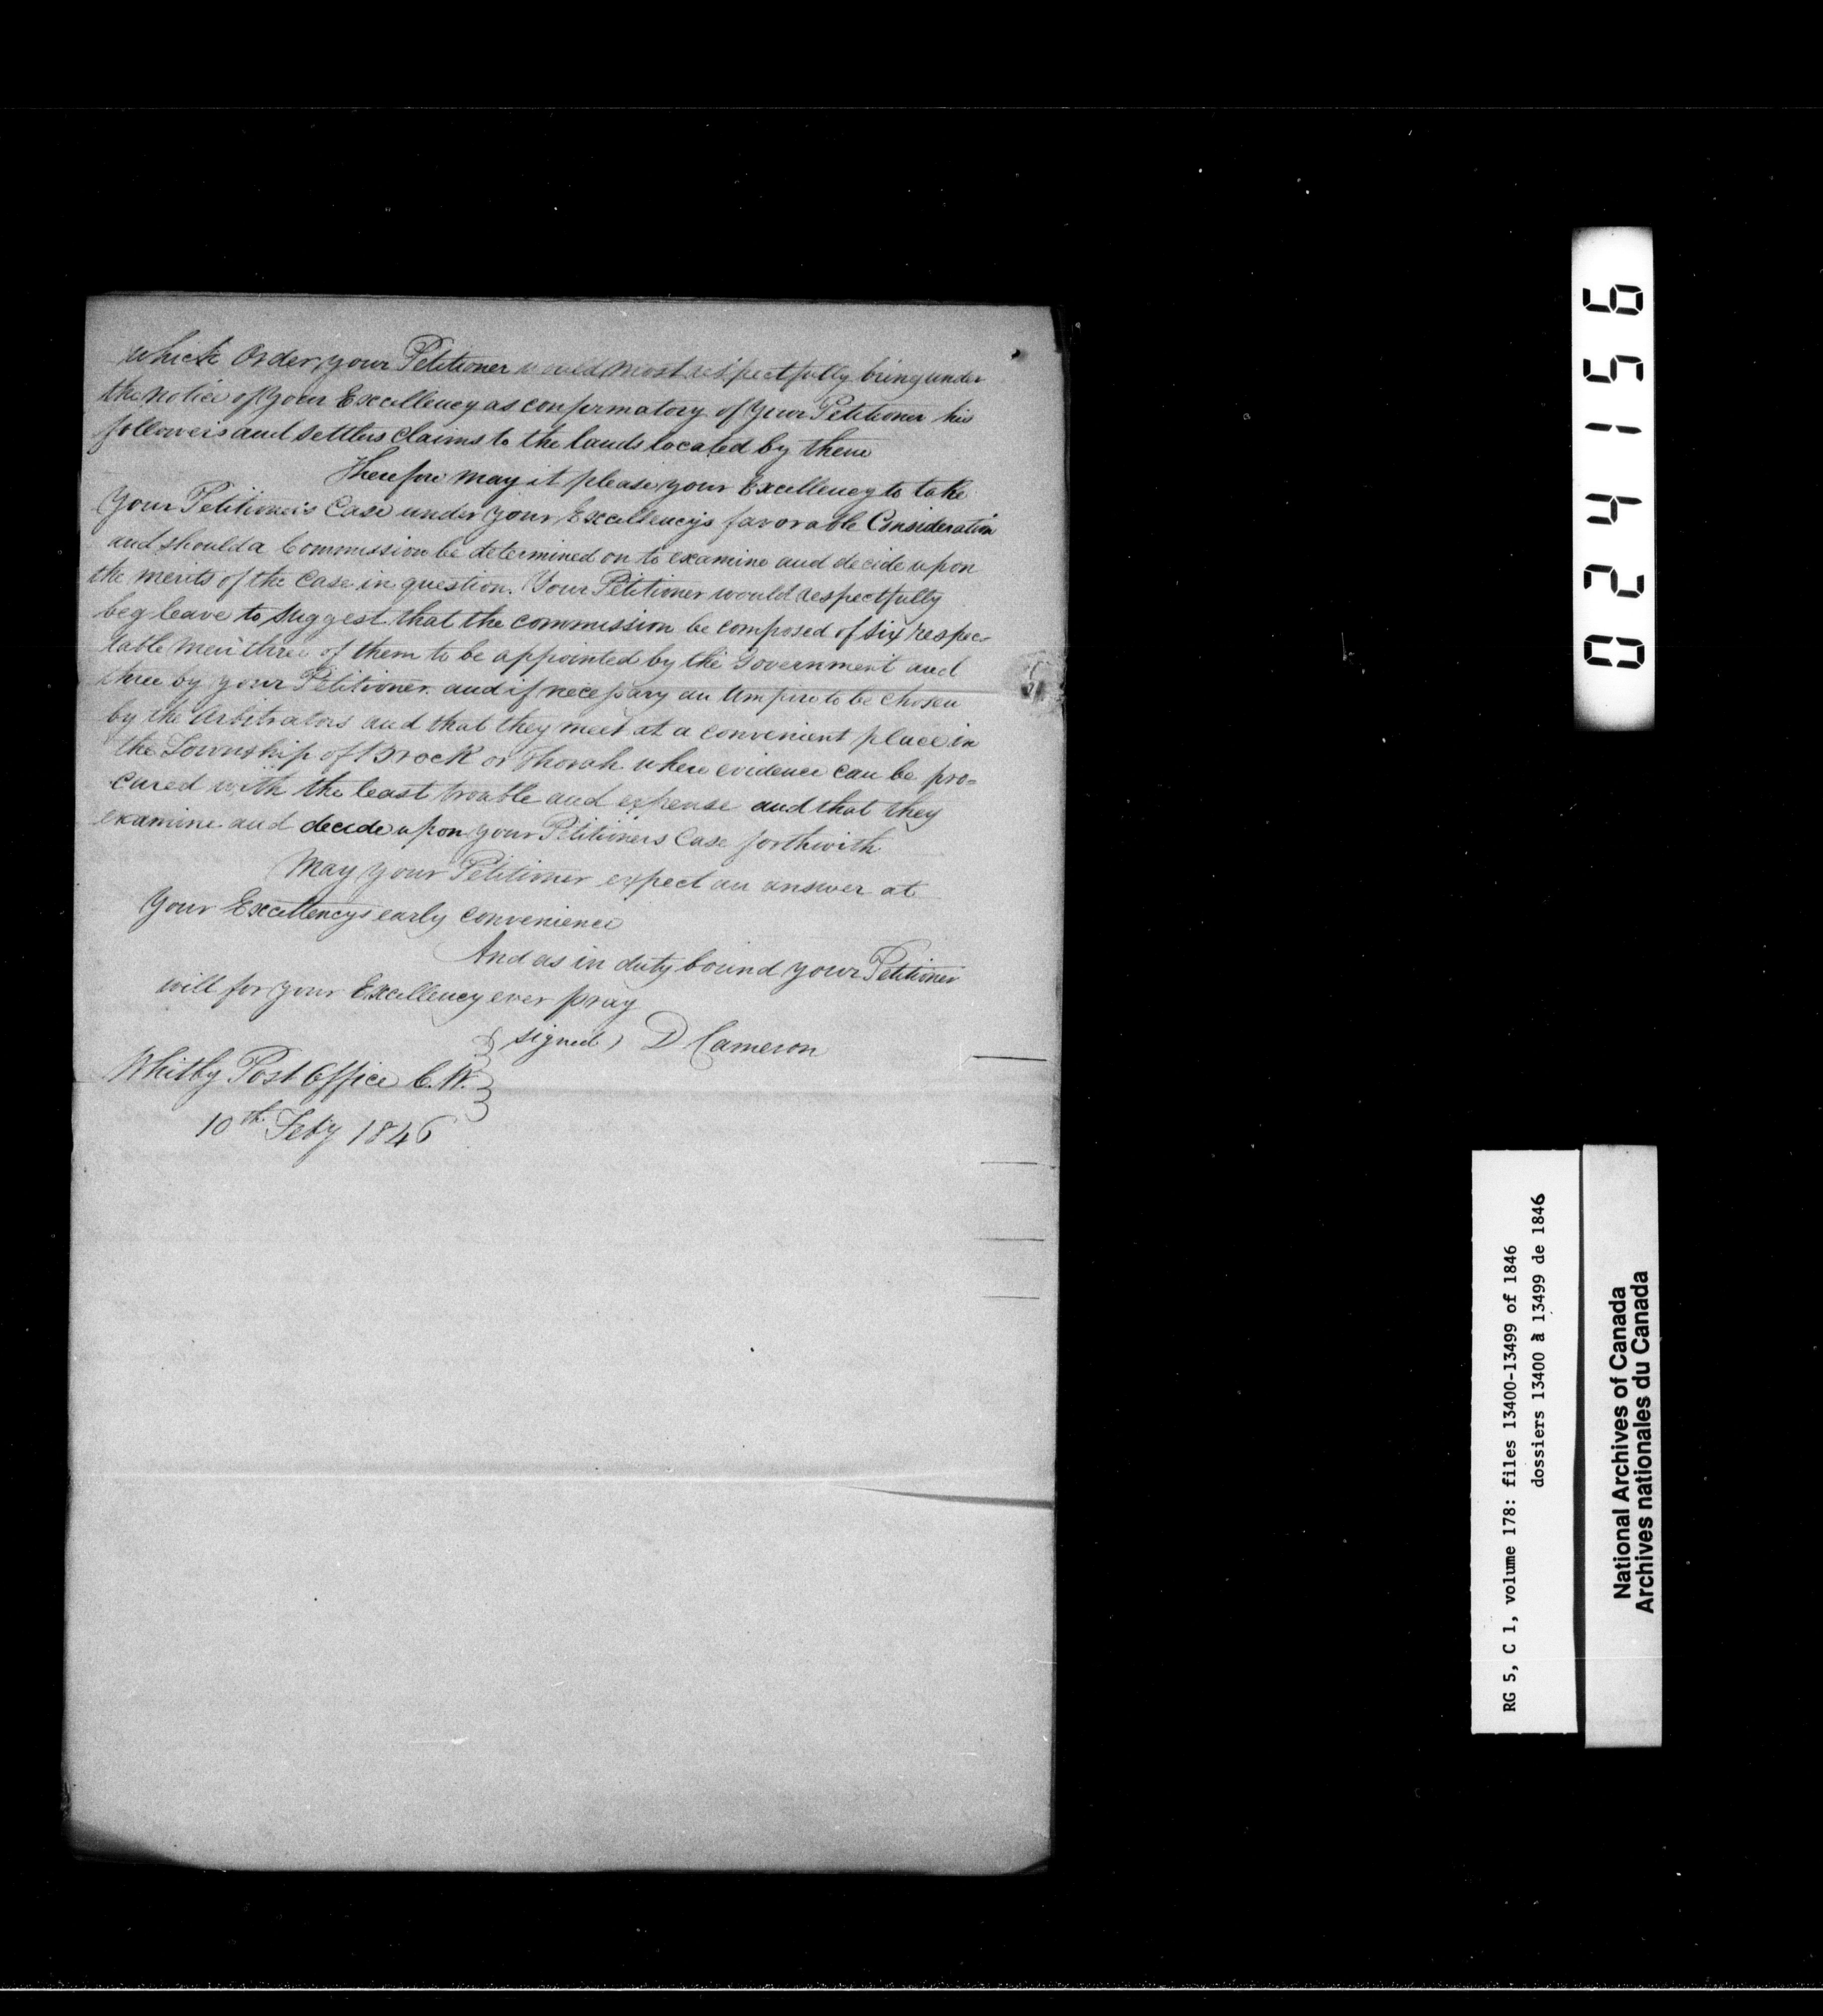 which Order, your Petitioner would most respectfully bring under
the notice of Your Excellency as confirmatory of Your Petitioner his
followers and settlers claims to the lands located by them
Therefore may it please your Excellency to take
Your Petitioner's Case under Your Excellency's favorable Consideration
and should a Commission be determined on to examine and decide upon
the merits of the Case in question. Your Petitioner would respectfully
beg leave to suggest that the commission be composed of six respec-
table men three of them to be appointed by the Government and
three by your Petitioner. and if necessary an Umpire to be chosen
by the Arbitrators and that they meet at a convenient place in
the Township of Brock or Thorah where evidence can be pro=
cured with the least trouble and expense and that they
examine and decide upon your Petitioners Case forthwith
May your Petitioner expect an answer at
Your Excellencys early convenience
And as in duty bound your Petitioner
will for your Excellency ever pray
signed) D Cameron
Whitby Post Office C.W.
10th Feby 1846
024156
RG 5, C 1, volume 178: files 13400-13499 of 1846
dossiers 13400 à 13499 de 1846
National Archives of Canada
Archives nationales du Canada